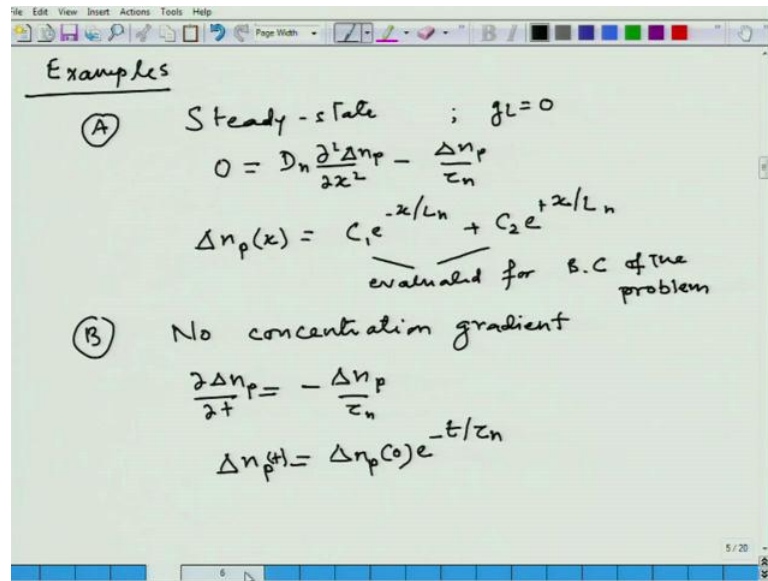 File Edit View Insert Actions Tools Help
Page Width B I
Examples
(A) Steady-state ; gL = 0
0 = Dn ∂²Δnp/∂x² - Δnp/τn
Δnp(x) = C₁e^(-x/Ln) + C₂e^(+x/Ln)
evaluated for B.C of the
problem
(B) No concentration gradient
∂Δnp/∂t = - Δnp/τn
Δnp(t) = Δnp(0)e^(-t/τn)
5 / 20
6